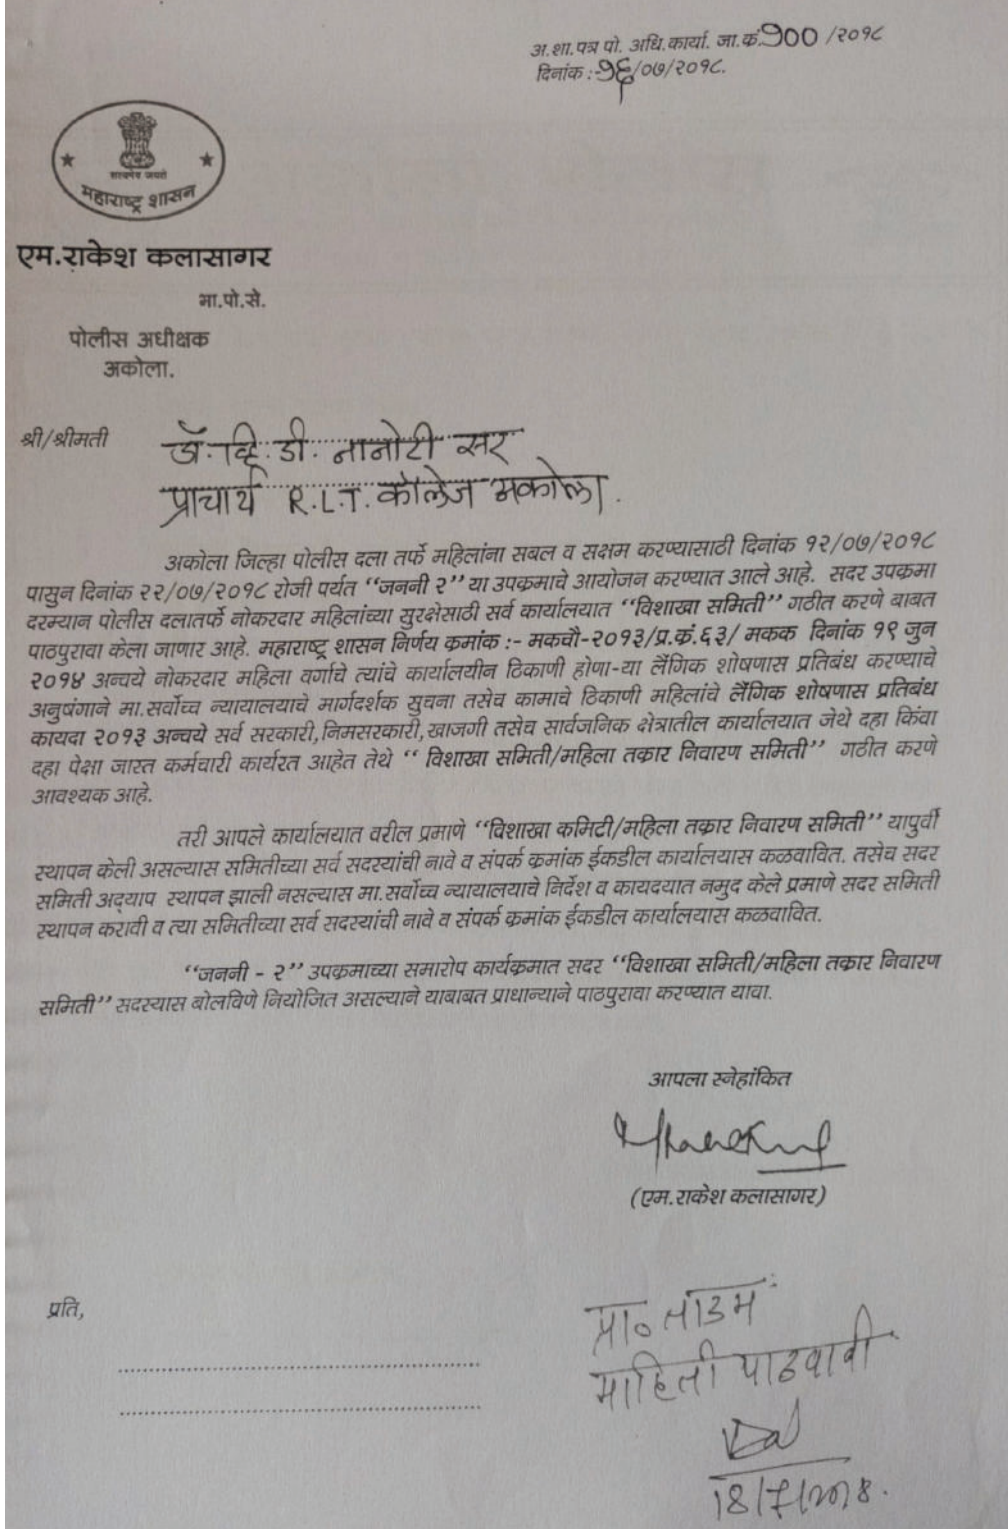 अ.शा.पत्र पो. अधि.कार्या. जा.कं.१०० /२०१८
दिनांक :-१६/०७/२०१८.
सत्यमेव जयते
महाराष्ट्र शासन
एम.राकेश कलासागर
भा.पो.से.
पोलीस अधीक्षक
अकोला.
श्री/श्रीमती डॉ. व्हि. डी. नानोटी सर
प्राचार्य R.L.T. कॉलेज अकोला.
अकोला जिल्हा पोलीस दला तर्फे महिलांना सबल व सक्षम करण्यासाठी दिनांक १२/०७/२०१८
पासुन दिनांक २२/०७/२०१८ रोजी पर्यत ‘‘जननी २’’ या उपक्रमाचे आयोजन करण्यात आले आहे. सदर उपक्रमा
दरम्यान पोलीस दलातर्फे नोकरदार महिलांच्या सुरक्षेसाठी सर्व कार्यालयात ‘‘विशाखा समिती’’ गठीत करणे बाबत
पाठपुरावा केला जाणार आहे. महाराष्ट्र शासन निर्णय क्रमांक :- मकचौ-२०१३/प्र.कं.६३/ मकक दिनांक १९ जुन
२०१४ अन्वये नोकरदार महिला वर्गाचे त्यांचे कार्यालयीन ठिकाणी होणा-या लैंगिक शोषणास प्रतिबंध करण्याचे
अनुषंगाने मा.सर्वोच्च न्यायालयाचे मार्गदर्शक सुचना तसेच कामाचे ठिकाणी महिलांचे लैंगिक शोषणास प्रतिबंध
कायदा २०१३ अन्वये सर्व सरकारी,निमसरकारी,खाजगी तसेच सार्वजनिक क्षेत्रातील कार्यालयात जेथे दहा किंवा
दहा पेक्षा जास्त कर्मचारी कार्यरत आहेत तेथे ‘‘ विशाखा समिती/महिला तक्रार निवारण समिती’’ गठीत करणे
आवश्यक आहे.
तरी आपले कार्यालयात वरील प्रमाणे ‘‘विशाखा कमिटी/महिला तक्रार निवारण समिती’’ यापुर्वी
स्थापन केली असल्यास समितीच्या सर्व सदस्यांची नावे व संपर्क क्रमांक ईकडील कार्यालयास कळवावित. तसेच सदर
समिती अद्याप स्थापन झाली नसल्यास मा.सर्वोच्च न्यायालयाचे निर्देश व कायदयात नमुद केले प्रमाणे सदर समिती
स्थापन करावी व त्या समितीच्या सर्व सदस्यांची नावे व संपर्क क्रमांक ईकडील कार्यालयास कळवावित.
‘‘जननी - २’’ उपक्रमाच्या समारोप कार्यक्रमात सदर ‘‘विशाखा समिती/महिला तक्रार निवारण
समिती’’ सदस्यास बोलविणे नियोजित असल्याने याबाबत प्राधान्याने पाठपुरावा करण्यात यावा.
आपला स्नेहांकित
(एम.राकेश कलासागर)
प्रति,
प्रा०
माहिती पाठवावी
18/7/2018.